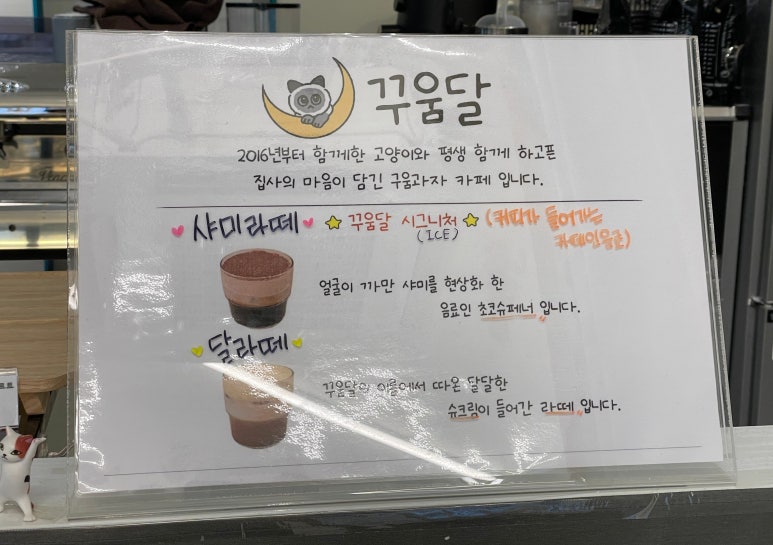 꾸움달
2016년부터 함께한 고양이와 평생 함께 하고픈
집사의 마음이 담긴 구움과자 카페 입니다.
샤미라떼 꾸움달 시그니처 (커피가 들어가는
(ICE) 카페인음료)
얼굴이 까만 샤미를 현상화 한
음료인 초코슈페너 입니다.
달라떼
꾸움달의 이름에서 따온 달달한
슈크림이 들어간 라떼 입니다.